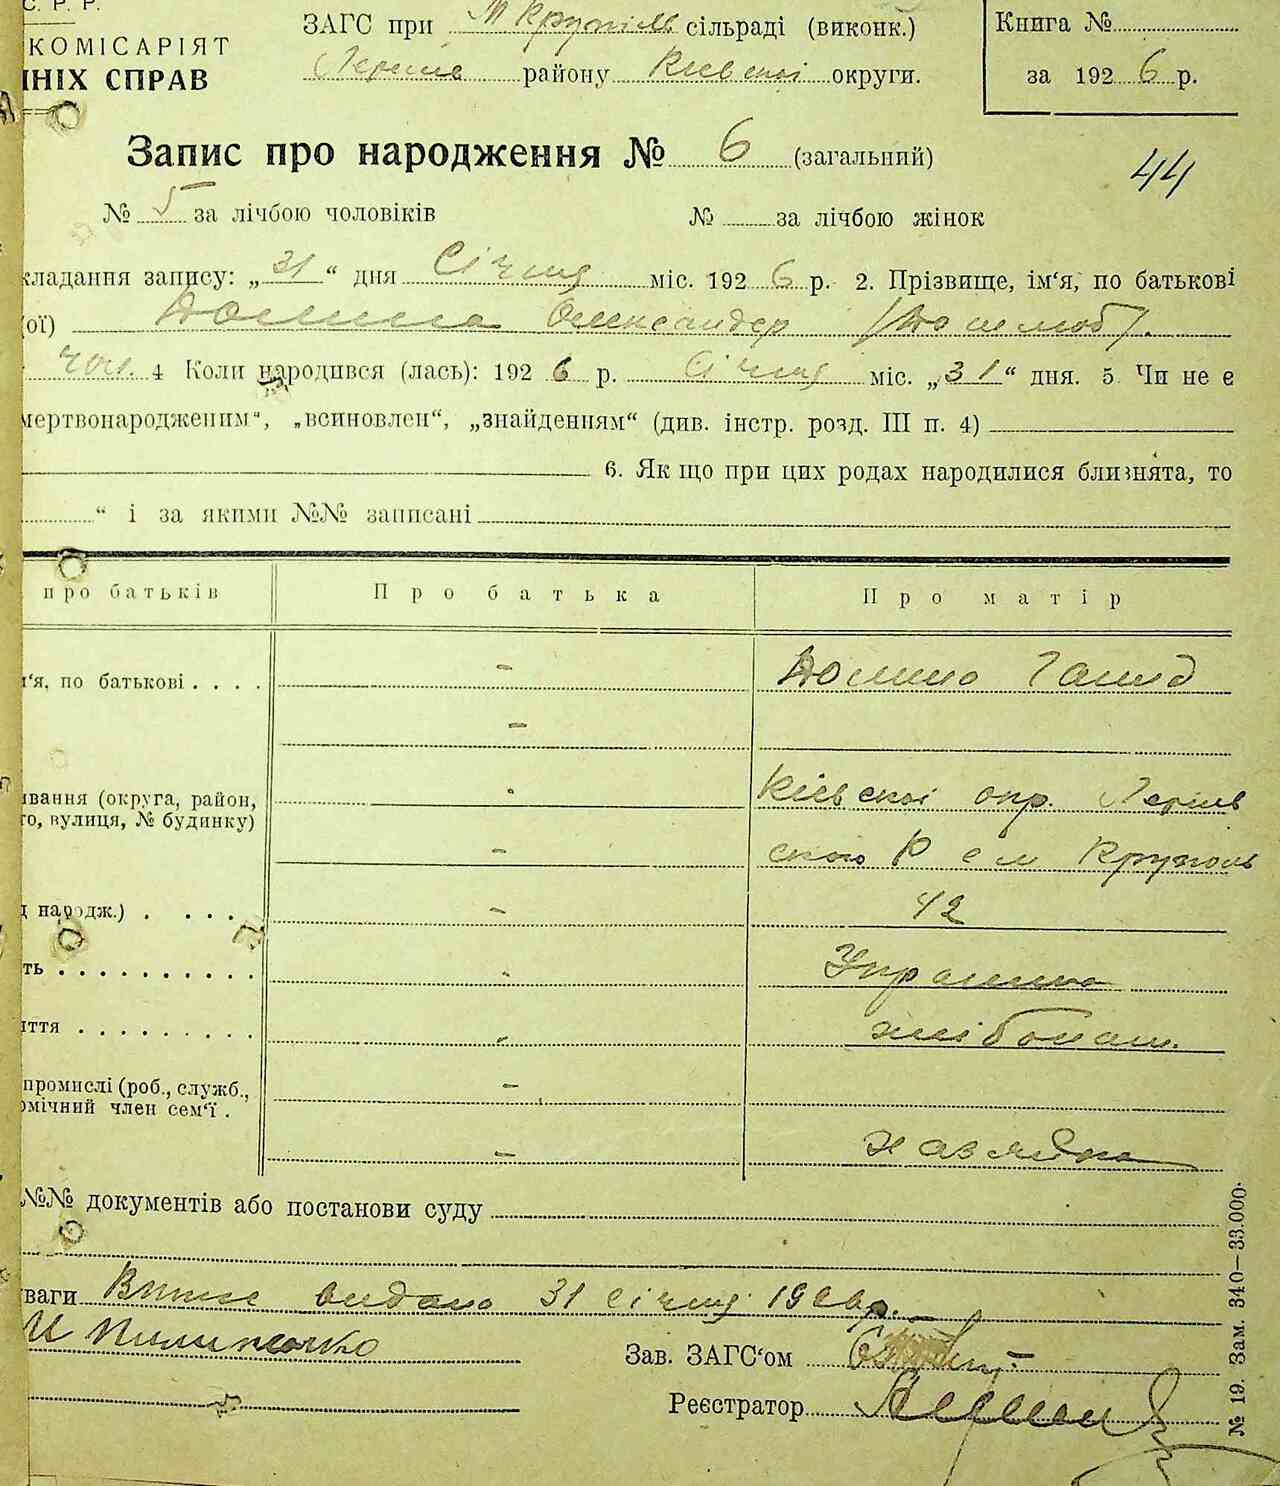 С. Р. Р.
КОМІСАРІЯТ
ІНІХ СПРАВ
ЗАГС при М Круполь сільраді (виконк.)
району Київської округи.
Книга №
за 192 6 р.
Запис про народження № 6 (загальний)
44
№ 5 за лічбою чоловіків № за лічбою жінок
кладання запису: „31“ дня Січня міс. 192 6 р. 2. Прізвище, ім‘я, по батькові
(ої) Олександер
чол. 4 Коли народився (лась): 192 6 р. Січня міс. „31“ дня. 5 Чи не є
мертвонародженим“, „всиновлен“, „знайденням“ (див. інстр. розд. III п. 4)
6. Як що при цих родах народилися близнята, то
“ і за якими №№ записані
про батьків Про батька Про матір
м‘я, по батькові
ивання (округа, район, Київської окр.
го, вулиця, № будинку)
ского Р с м Круполь
д народж.) 42
ть Українка
яття хлібопаш.
промислі (роб., служб.,
омічний член сем‘ї .
хазяйка
№№ документів або постанови суду
уваги Випис видано 31 січня 1926р.
Зав. ЗАГС‘ом
Реєстратор
№ 19. Зам. 340—33.000.